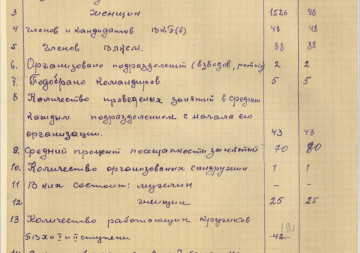 3 Женщин 1520 98
4 членов и кандидатов ВКП(б) 48 48
5 членов ВЛКСМ. 88 88
6. Организовано подразделений (взводов, рот) 2 2
7. Подобрано Командиров 5 5
8 Количество проведеных занятий в среднем
каждым подразделением с начала его
организации. 43 43
9. Средний процент посещаемости занятий 70 80
10. Количество организованых сандружин 1 1
11 В них состоит: мужчин - -
12 женщин 25 25
13 Количество работающих кружков
ПВХО I и II ступени 42